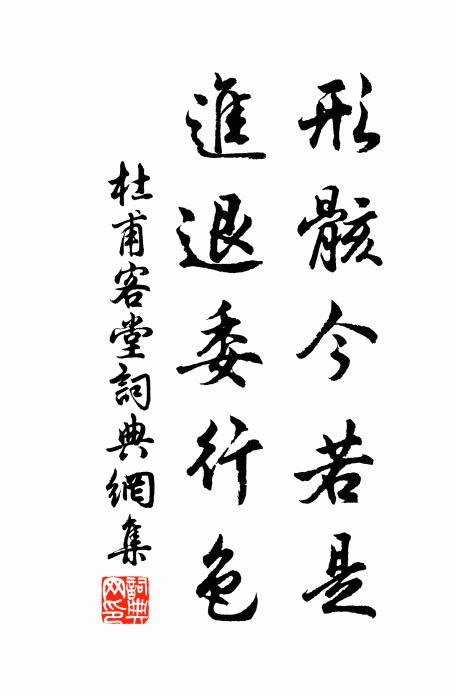 形骸今若是
進退委行色
杜甫客堂詞典網集
詞典網印